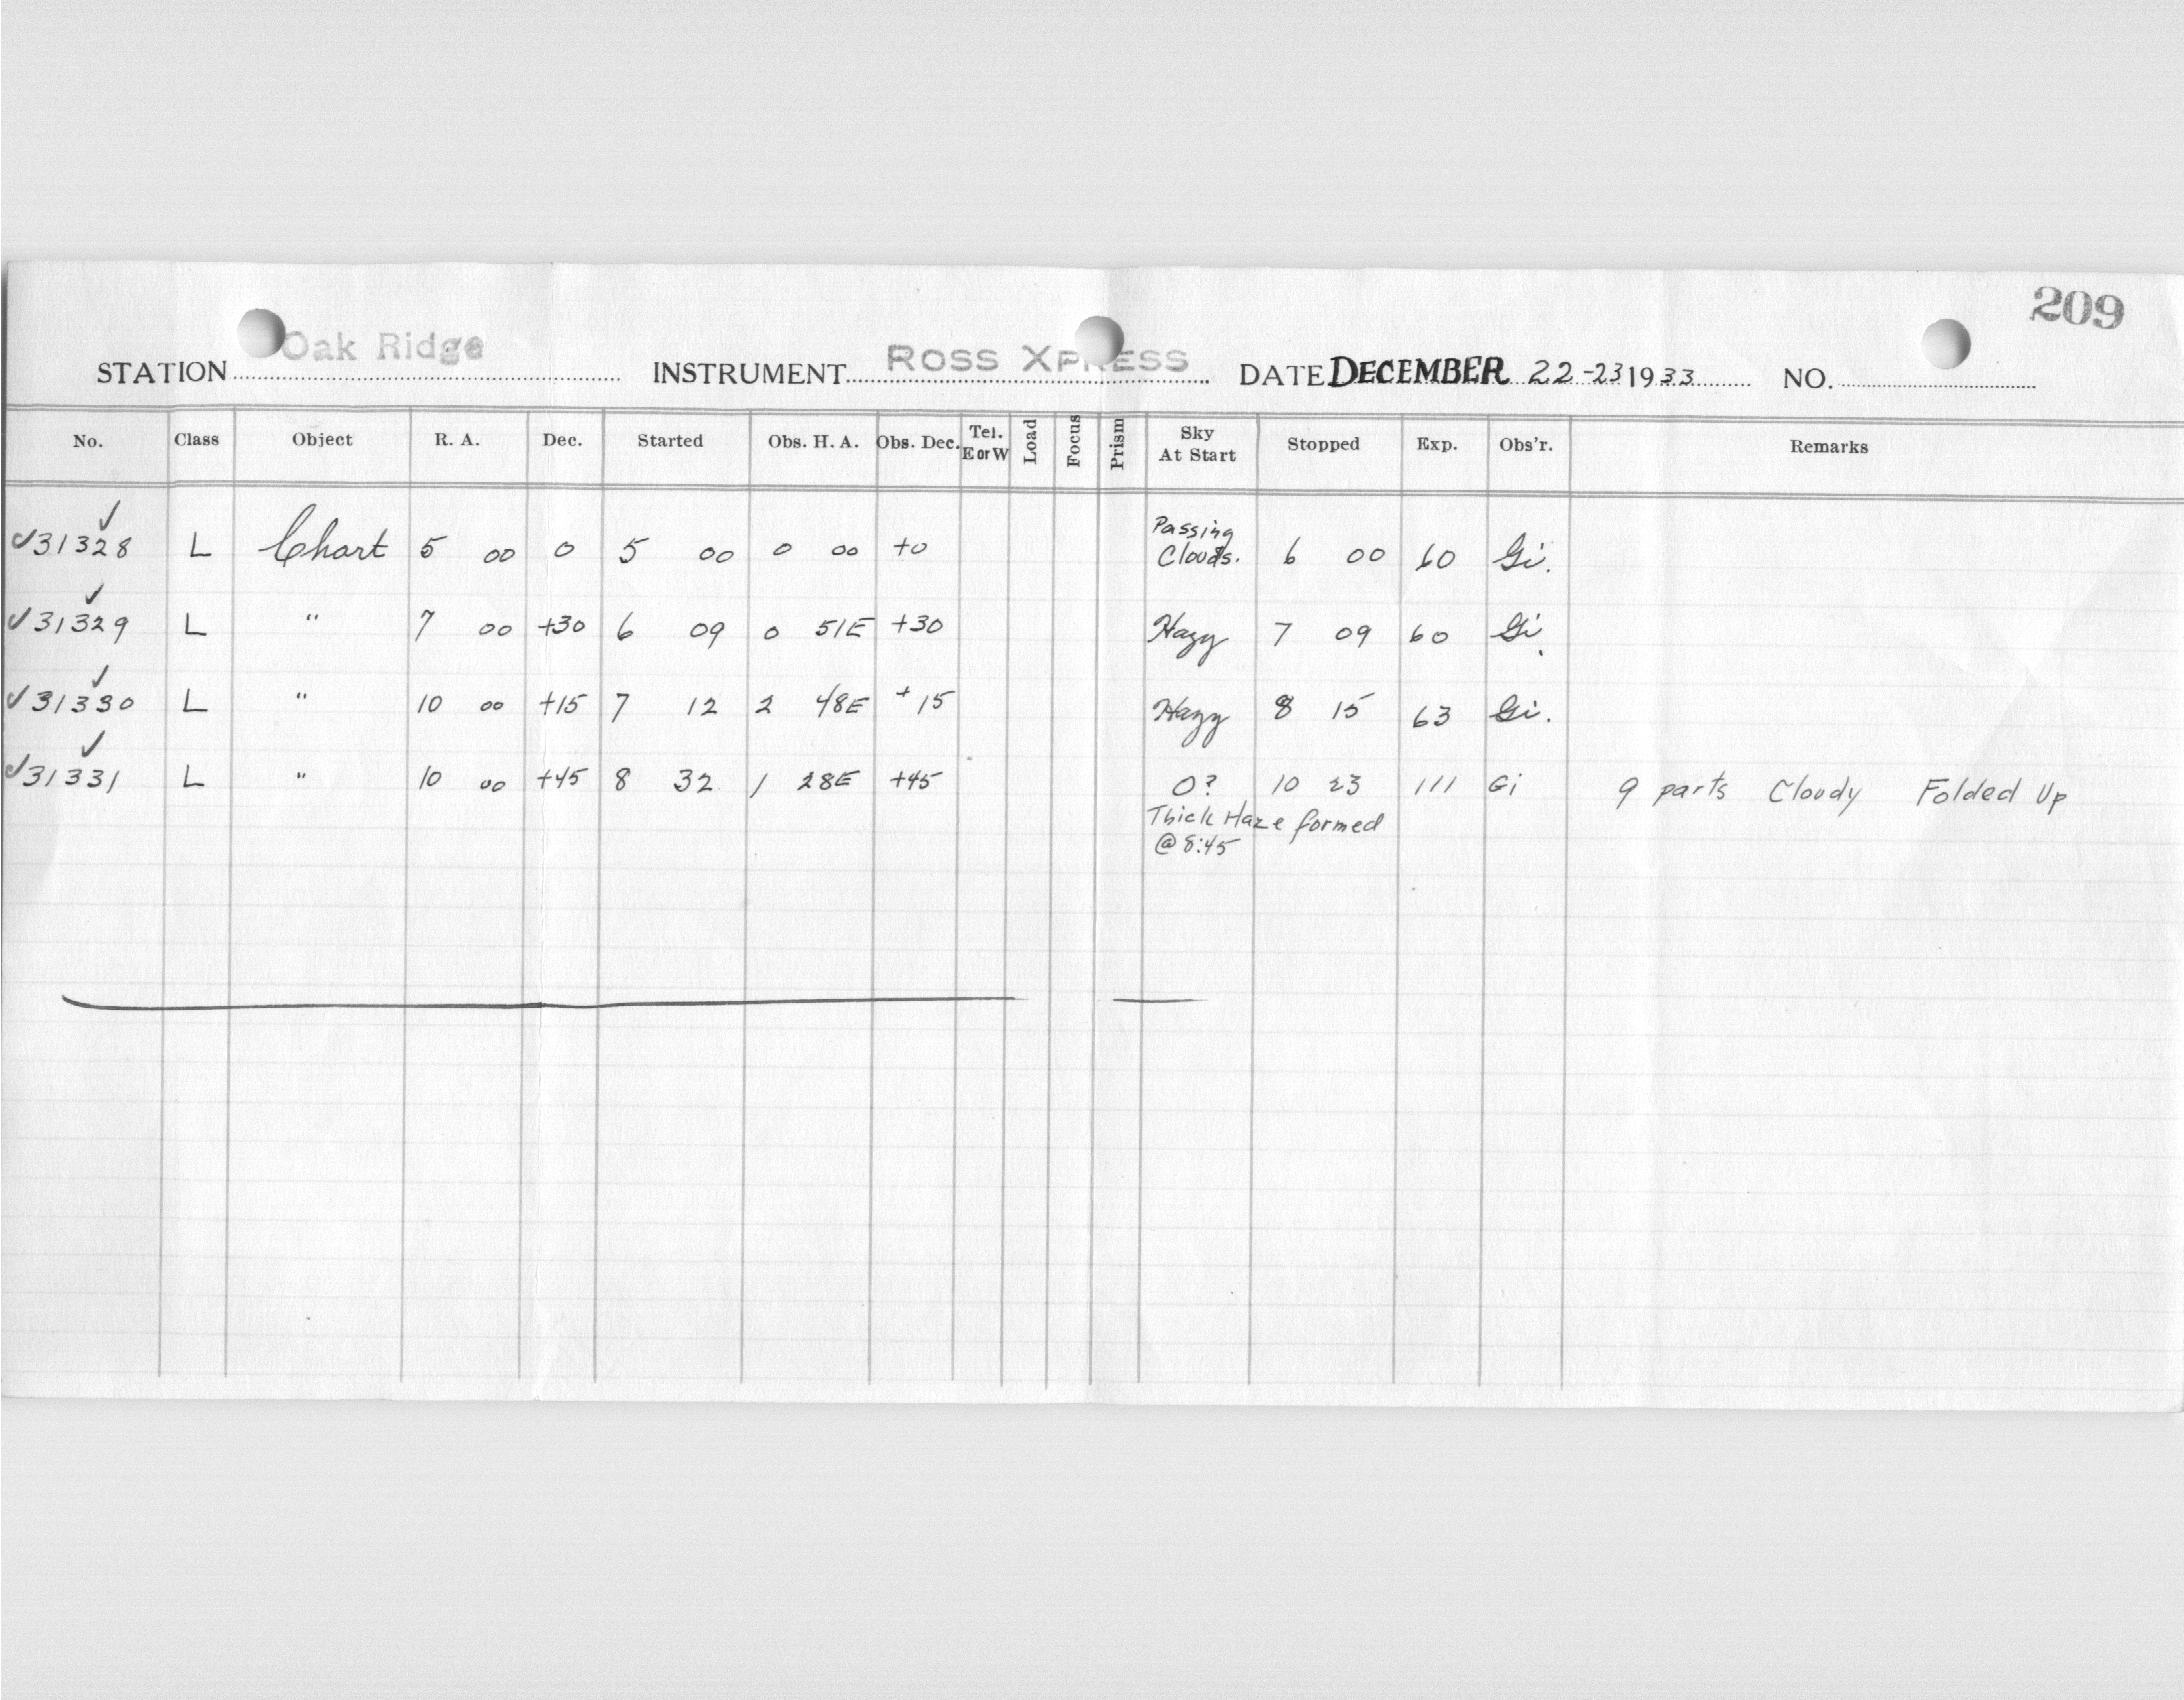 209
STATION Oak Ridge INSTRUMENT ROSS XPRESS DATE DECEMBER 22-23 1933 NO.
No. Class Object R. A. Dec. Started Obs. H. A. Obs. Dec. Tel. E or W Load Focus Prism Sky At Start Stopped Exp. Obs'r. Remarks
✓31328 ✓ L Chart 5 00 0 5 00 0 00 +0 Passing Clouds. 6 00 60 Gi.
✓31329 ✓ L " 7 00 +30 6 09 0 51E +30 Hazy 7 09 60 Gi.
✓31330 ✓ L " 10 00 +15 7 12 2 48E +15 Hazy 8 15 63 Gi.
✓31331 ✓ L " 10 00 +45 8 32 1 28E +45 0? 10 23 111 Gi 9 parts Cloudy Folded Up
Thick Haze formed
@ 8:45